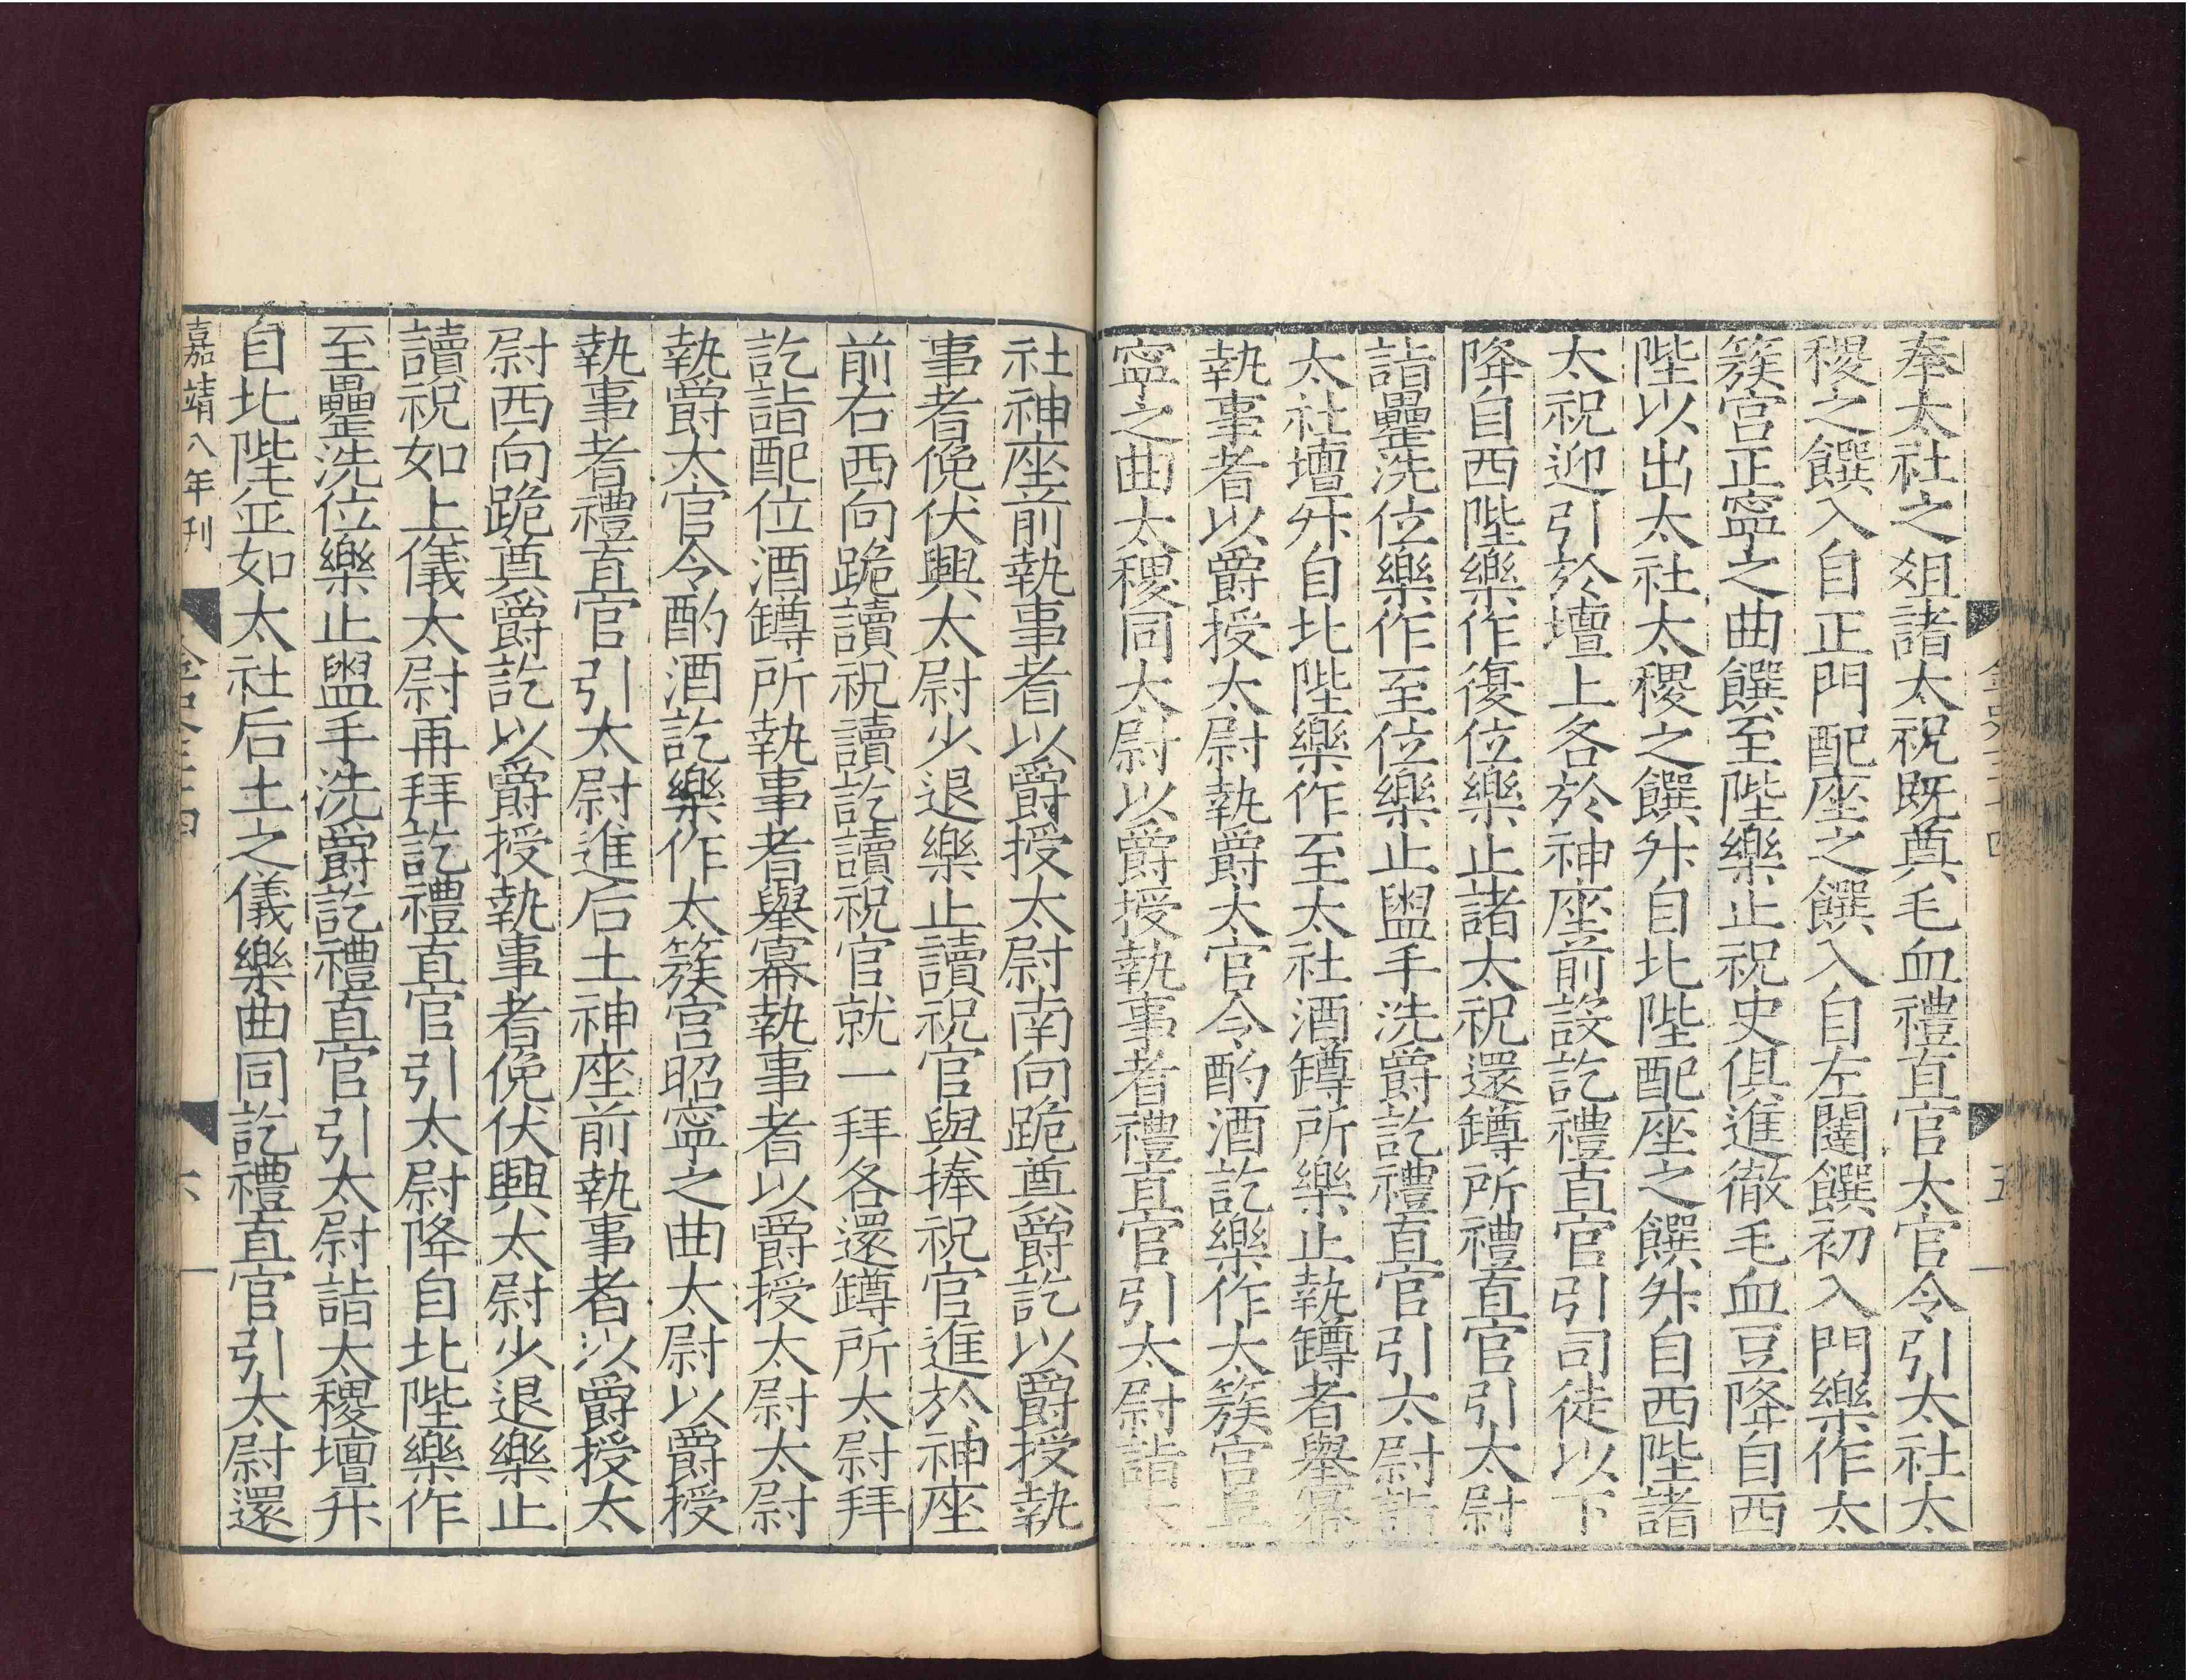 奉太社之俎諸太祝既奠毛血禮直官太官令引太社太
稷之饌入自正門配座之饌入自左闥饌初入門樂作太
簇宫正寧之曲饌至陛樂止祝史俱進徹毛血豆降自西
陛以出太社太稷之饌升自北陛配座之饌升自西陛諸
太祝迎引於壇上各於神座前設訖禮直官引司徒以下
降自西陛樂作復位樂止諸太祝還罇所禮直官引太尉
詣罍洗位樂作至位樂止盥手洗爵訖禮直官引太尉詣
太社壇升自北陛樂作至太社酒罇所樂止執罇者舉羃
執事者以爵授太尉執爵太官令酌酒訖樂作太簇宫
寧之曲太稷同太尉以爵授執事者禮直官引太尉詣太
五
社神座前執事者以爵授太尉南向跪奠爵訖以爵授執
事者俛伏興太尉少退樂止讀祝官與捧祝官進於神座
前右西向跪讀祝讀訖讀祝官就一拜各還罇所太尉拜
訖詣配位酒罇所執事者舉羃執事者以爵授太尉太尉
執爵太官令酌酒訖樂作太簇宫昭寧之曲太尉以爵授
執事者禮直官引太尉進后土神座前執事者以爵授太
尉西向跪奠爵訖以爵授執事者俛伏興太尉少退樂止
讀祝如上儀太尉再拜訖禮直官引太尉降自北陛樂作
至罍洗位樂止盥手洗爵訖禮直官引太尉詣太稷壇升
自北陛並如太社后土之儀樂曲同訖禮直官引太尉還
嘉靖八年刊
六